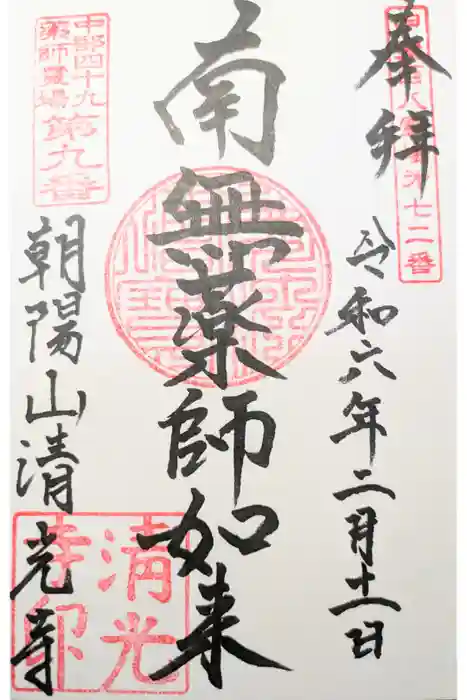 奉拝
令和六年二月十一日
南無薬師如来
中部四十九
薬師霊場
第九番
朝陽山清光寺
清光
寺印